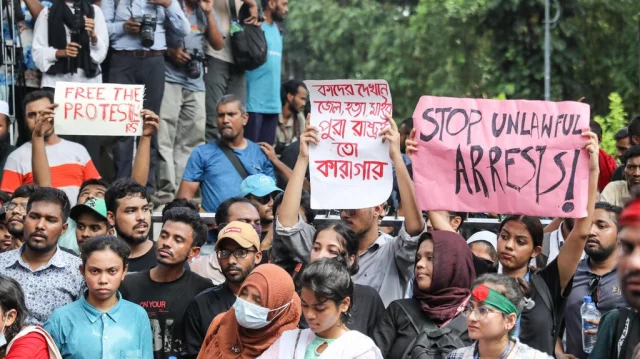 FREE THE
PROTESTERS
কাদের দেখান
জেল, হত্যা, মাইর
পুরা রাষ্ট্রই
তো
কারাগার
STOP UNLAWFUL
ARRESTS!